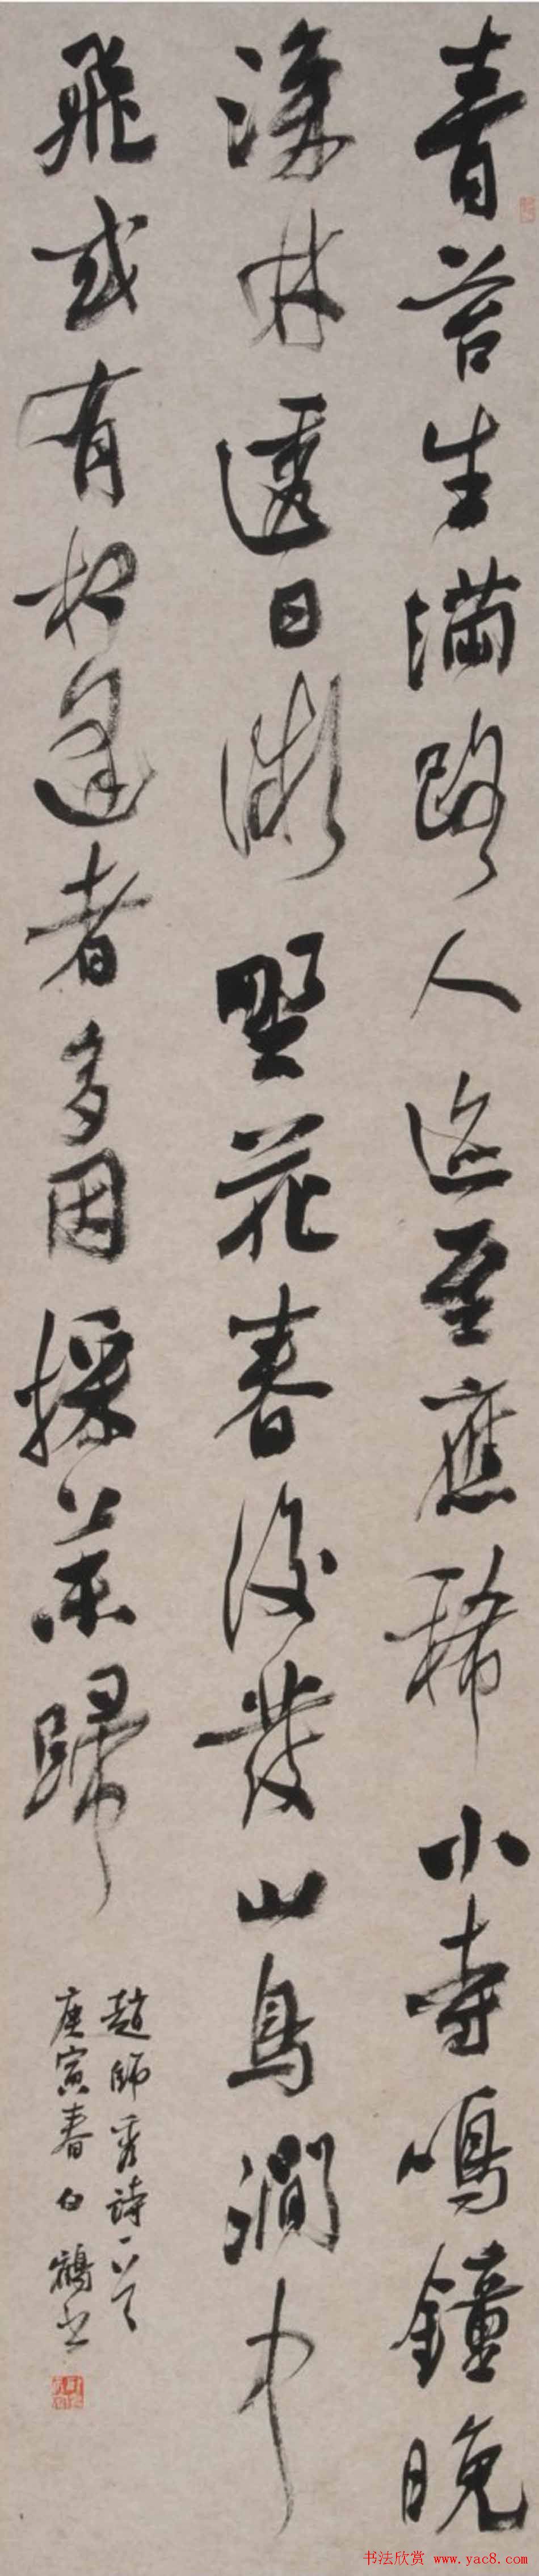 青苔生满路人迹至應稀小寺鳴鐘晚
深林透日微野花春後發山鳥澗中
飛或有相逢者多因採藥歸
趙師秀詩一首
庚寅春白鶴書
书法欣赏 www.yac8.com